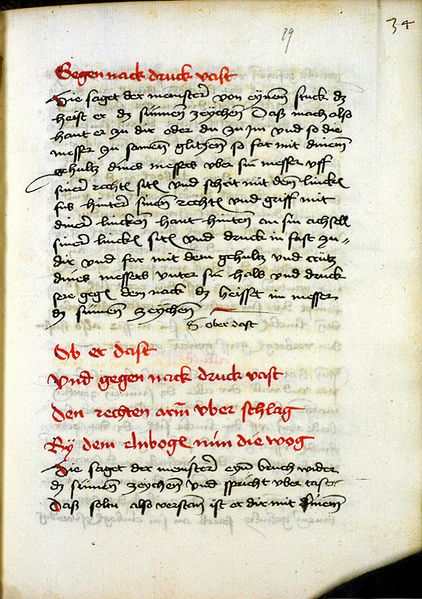 29
34
Gegen nack druck vast
Hie saget der meinster von eynem stuck dz
heist er dz sunnen zeychen Daß mach also
haut er zu dir oder du zu im und so die
messer zu samen glitzen so far mit dinem
gehultz dines messers uber sin messer uff
siner rechten siten und schrit mit dem lincken
fus hinter sinen rechten und griff mit
diner lincken hant hinten an sin achseln
siner lincken siten und druck in fast zu
dir und far mit dem gehultz und crütz
dines messers unter sin hals und druck
sere gegen den nack dz heisset im messer
dz sunnen zeychen
ober dast
Ob er dast
Und gegen nack druck vast
Den rechten arm uber schlag
By dem elnbogen nim die wog
Hie saget der meinster eyn bruch wider
dz sunnen zeychen und spricht uber tast
Daß soltu also verstann ist er dir mit sinem